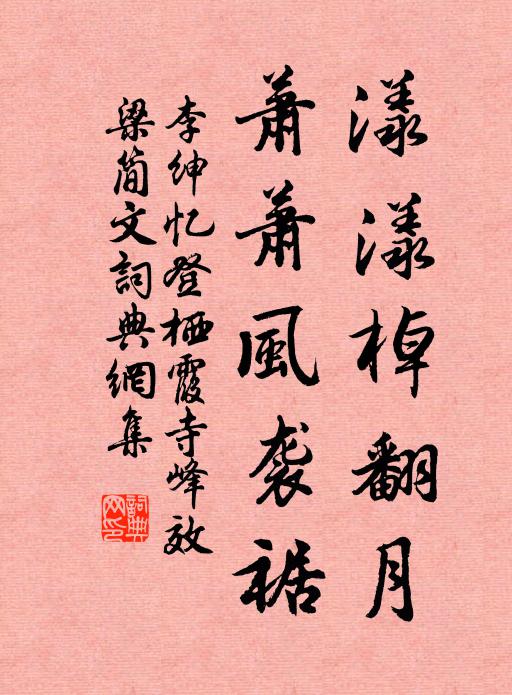 漾漾棹翻月
蕭蕭風袭裾
李绅忆登栖霞寺峰效
梁简文詞典網集
詞典网印